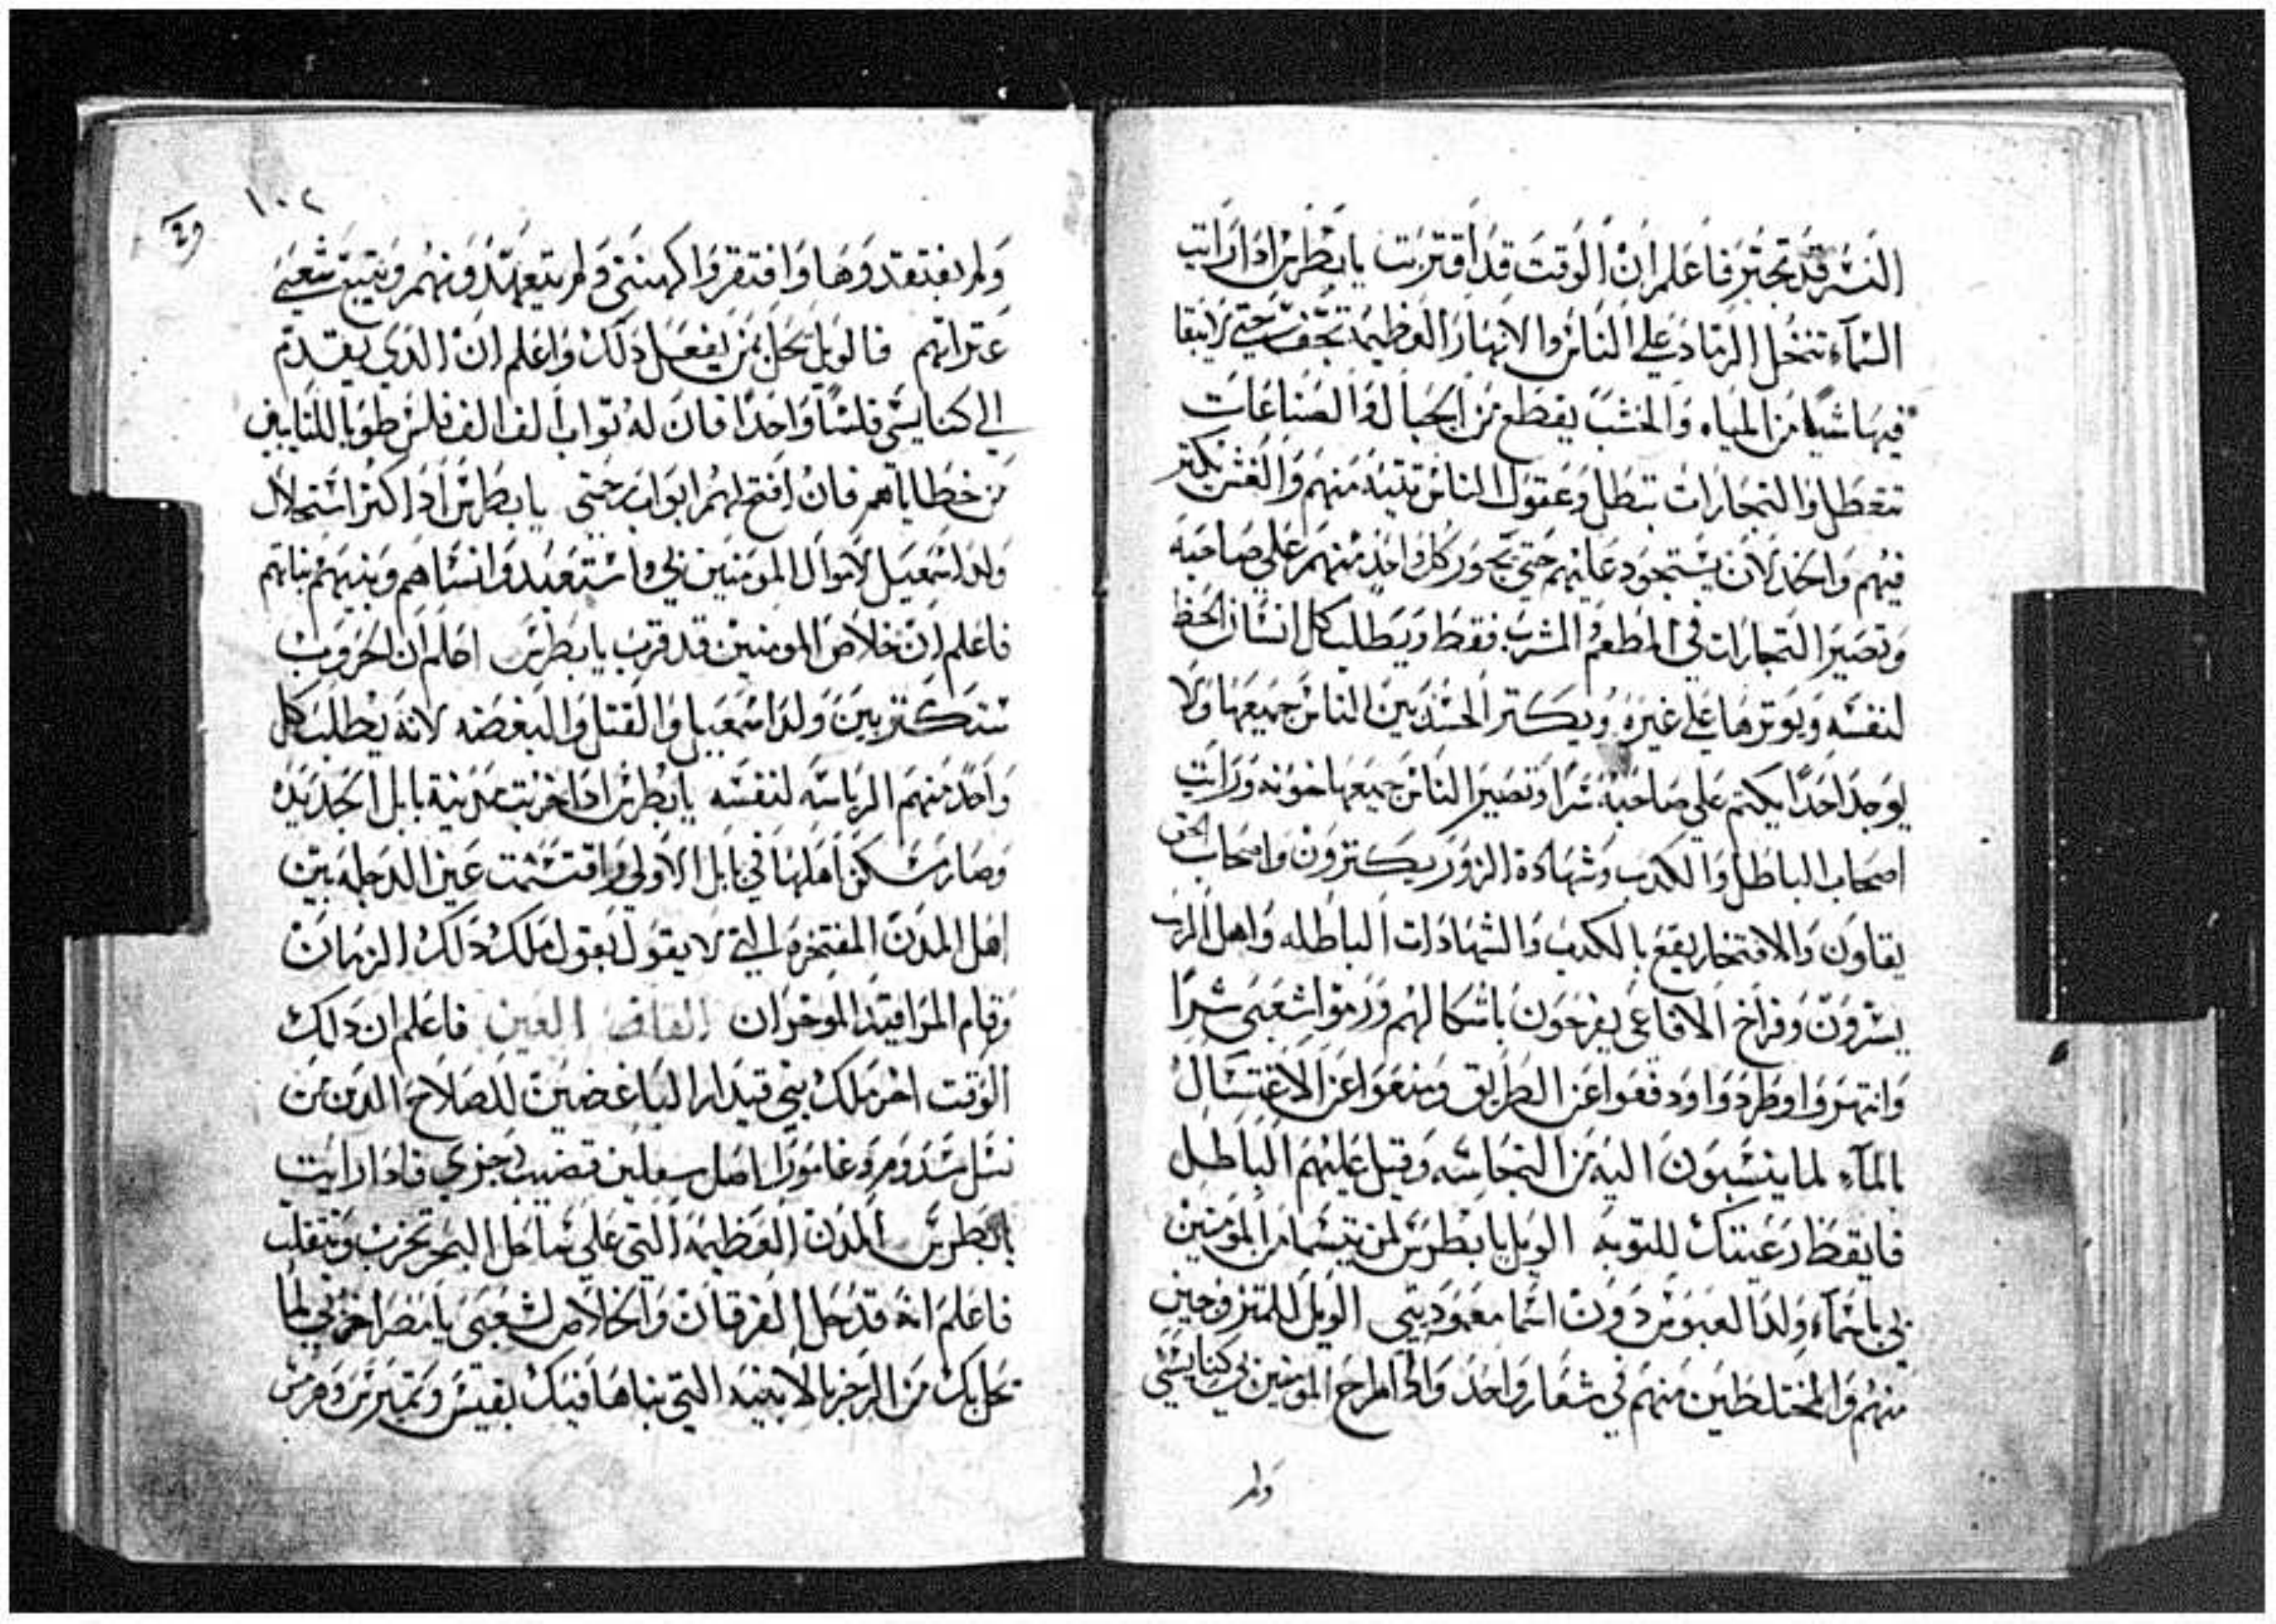 النسر قد تجبر فاعلم ان الوقت قد اقتربت يا بطرس اذا رايت
السمآء تنخل الرماد علي الناس والانهار العظيمه تجف حتي لا يبقا
فيها شيا من المياه والخشب يقطع من الجبال والصناعات
تتعطل والتجارات تبطل وعقول الناس منهم والغش يكتر
فيهم واحد لان عليهم حتي يجور كل واحد منهم علي صاحبه
وتصير التجارات في المطعم المشرب فقط ويطلب كل انسان الحظ
لنفسه ويوترها علي غيره ويكتر الحسد بين الناس جميعها ولا
يوجد احدا يكتم علي صاحبه سرا وتصير الناس جميعها خونه ورايت
اصحاب الباطل والكدب وشهادة الزور يكترون واصحاب الحق
يقلون والافتخار يقع بالكدب والشهادات الباطله واهل
وفراخ الافاعي يفرحون باشكالهم ورموا شعبي شرا
وانتهروا وطردوا ودفعوا عن الطريق ومنعوا عن الاغتسال
بالمآء لما ينسبون اليه من النجاسه وقيل عليهم الباطل
فايقظ رعيتك للتوبه الويل يا بطرس لمن يتسما من المومنين
بي باسمآء ولد العبوس دون اسما معموديتي الويل للمتزوجين
منهم والمختلطين منهم في شعار واحد واذا المومنين بي كنايسي
ولم
١٠٢
ولم يفتقدوها وافتقروا كهنتي ولم يتعهدونهم ويتبع شعبي
عتراتهم فالويل يحل بمن يفعل دلك واعلم ان الدي يقدم
الي كنايسي فلسا واحدا فان له تواب الف الف فلس طوبا للتايبين
من خطاياهم فان افتح لهم ابواب رحمتي يا بطرس ادا اكتر استحلال
ولد اسمعيل لاموال المومنين بي واستعبدوا نساهم وبنيهم بناتهم
فاعلم ان خلاص المومنين قد قرب يا بطرس اعلم ان الحروب
ستكتر بين ولد اسمعيل والقتل والبغضه لانه يطلب كل
واحد منهم الرياسه لنفسه يا بطرس ادا خربت مدينة بابل الجديده
وصار سكن اهلها في بابل الاولي واقتسمت عين الدجله بين
اهل المدن المفتخره التي لا يقول بقول ملك دلك الزمان
وقام الموخران القاف العين فاعلم ان دلك
الوقت اخر ملك بني قيدار الباغضين للصلاح الدين من
نسل سدوم وغامورا اهل قضيب رجزي فادا رايت
يا بطرس المدن العظيمه التي علي ساحل البحر تخرب وتنقلب
فاعلم انه قد حل الفرقان والخلاص لشعبي يا مصر احزني لما
يحل بك من الرجز بالابنيه التي بناها فيك بقيس وهرمس